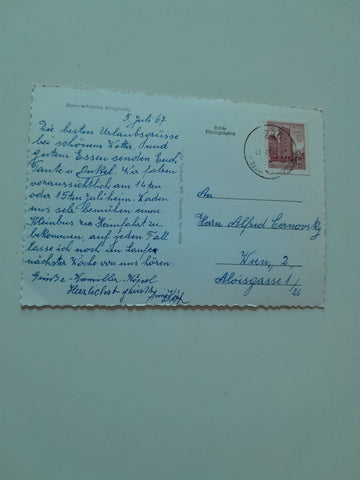 5. Juli 67
Die besten Urlaubsgrüsse
bei schönem Wetter und
gutem Essen senden Euch
Tante u. Onkel. Wir fahren
voraussichtlich am 14ten
oder 15ten Juli heim. Laden
uns sehr bemühen einen
Kleinbus zur Heimfahrt zu
bekommen, auf jeden Fall
lasse ich noch im Laufe
nächster Woche von uns hören.
Grüße - Familie
Herzlichst
Echte
Photographie
An
Herrn Alfred
Wien, 2,
Aloisgasse 1/
26